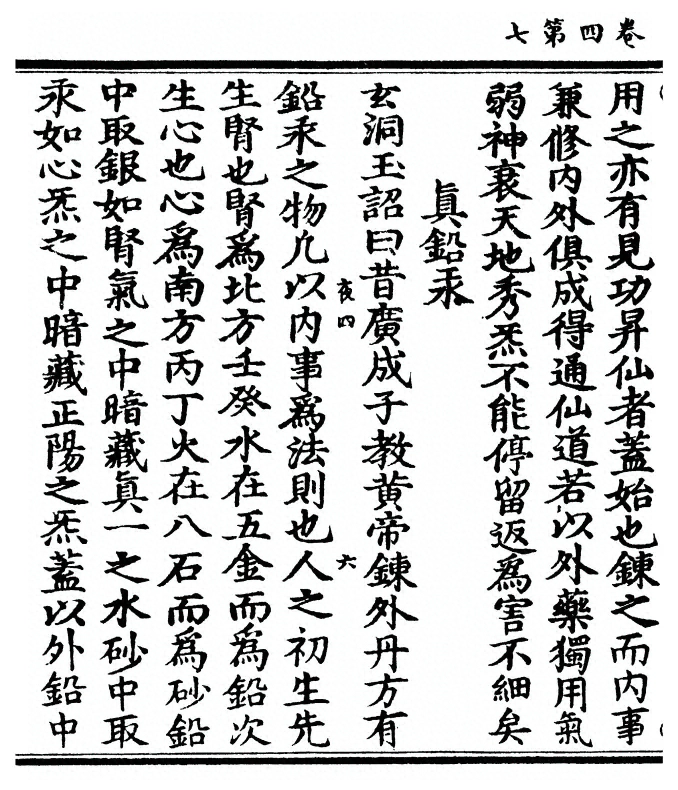 卷四第七
用之亦有見功昇仙者蓋始也鍊之而內事
兼修內外俱成得通仙道若以外藥獨用氣
弱神衰天地秀炁不能停留返爲害不細矣
真鉛汞
玄洞玉詔曰昔廣成子教黃帝鍊外丹方有
夜四
六
鉛汞之物凡以內事爲法則也人之初生先
生腎也腎爲北方壬癸水在五金而爲鉛次
生心也心爲南方丙丁火在八石而爲砂鉛
中取銀如腎氣之中暗藏真一之水砂中取
汞如心炁之中暗藏正陽之炁蓋以外鉛中